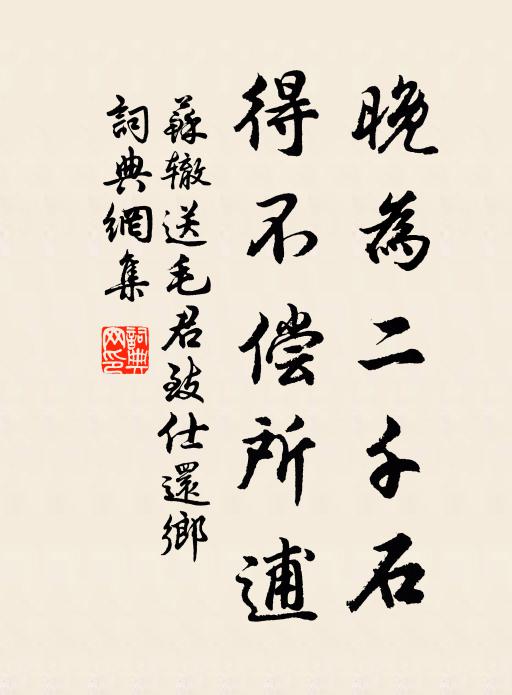 晚為二千石
得不偿所逋
蘇辙送毛君致仕還鄉
詞典網集
詞典网印